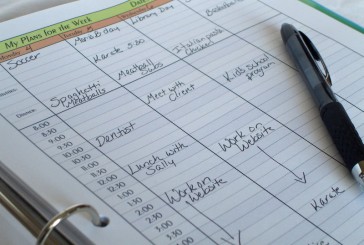 My Plans for the Week
Soccer
March day
Library Day
Karate 5:30
Spaghetti
Meatballs
Meatball
Subs
Italian pasta
Chicken
Dentist
Meet with
Client
Kid's School
program
Lunch with
Sally
Work on
website
Work on
Website
Karate
8:00
8:30
9:00
9:30
10:00
10:30
11:00
11:30
12:00
12:30
1:00
1:30
2:00
2:30
3:00